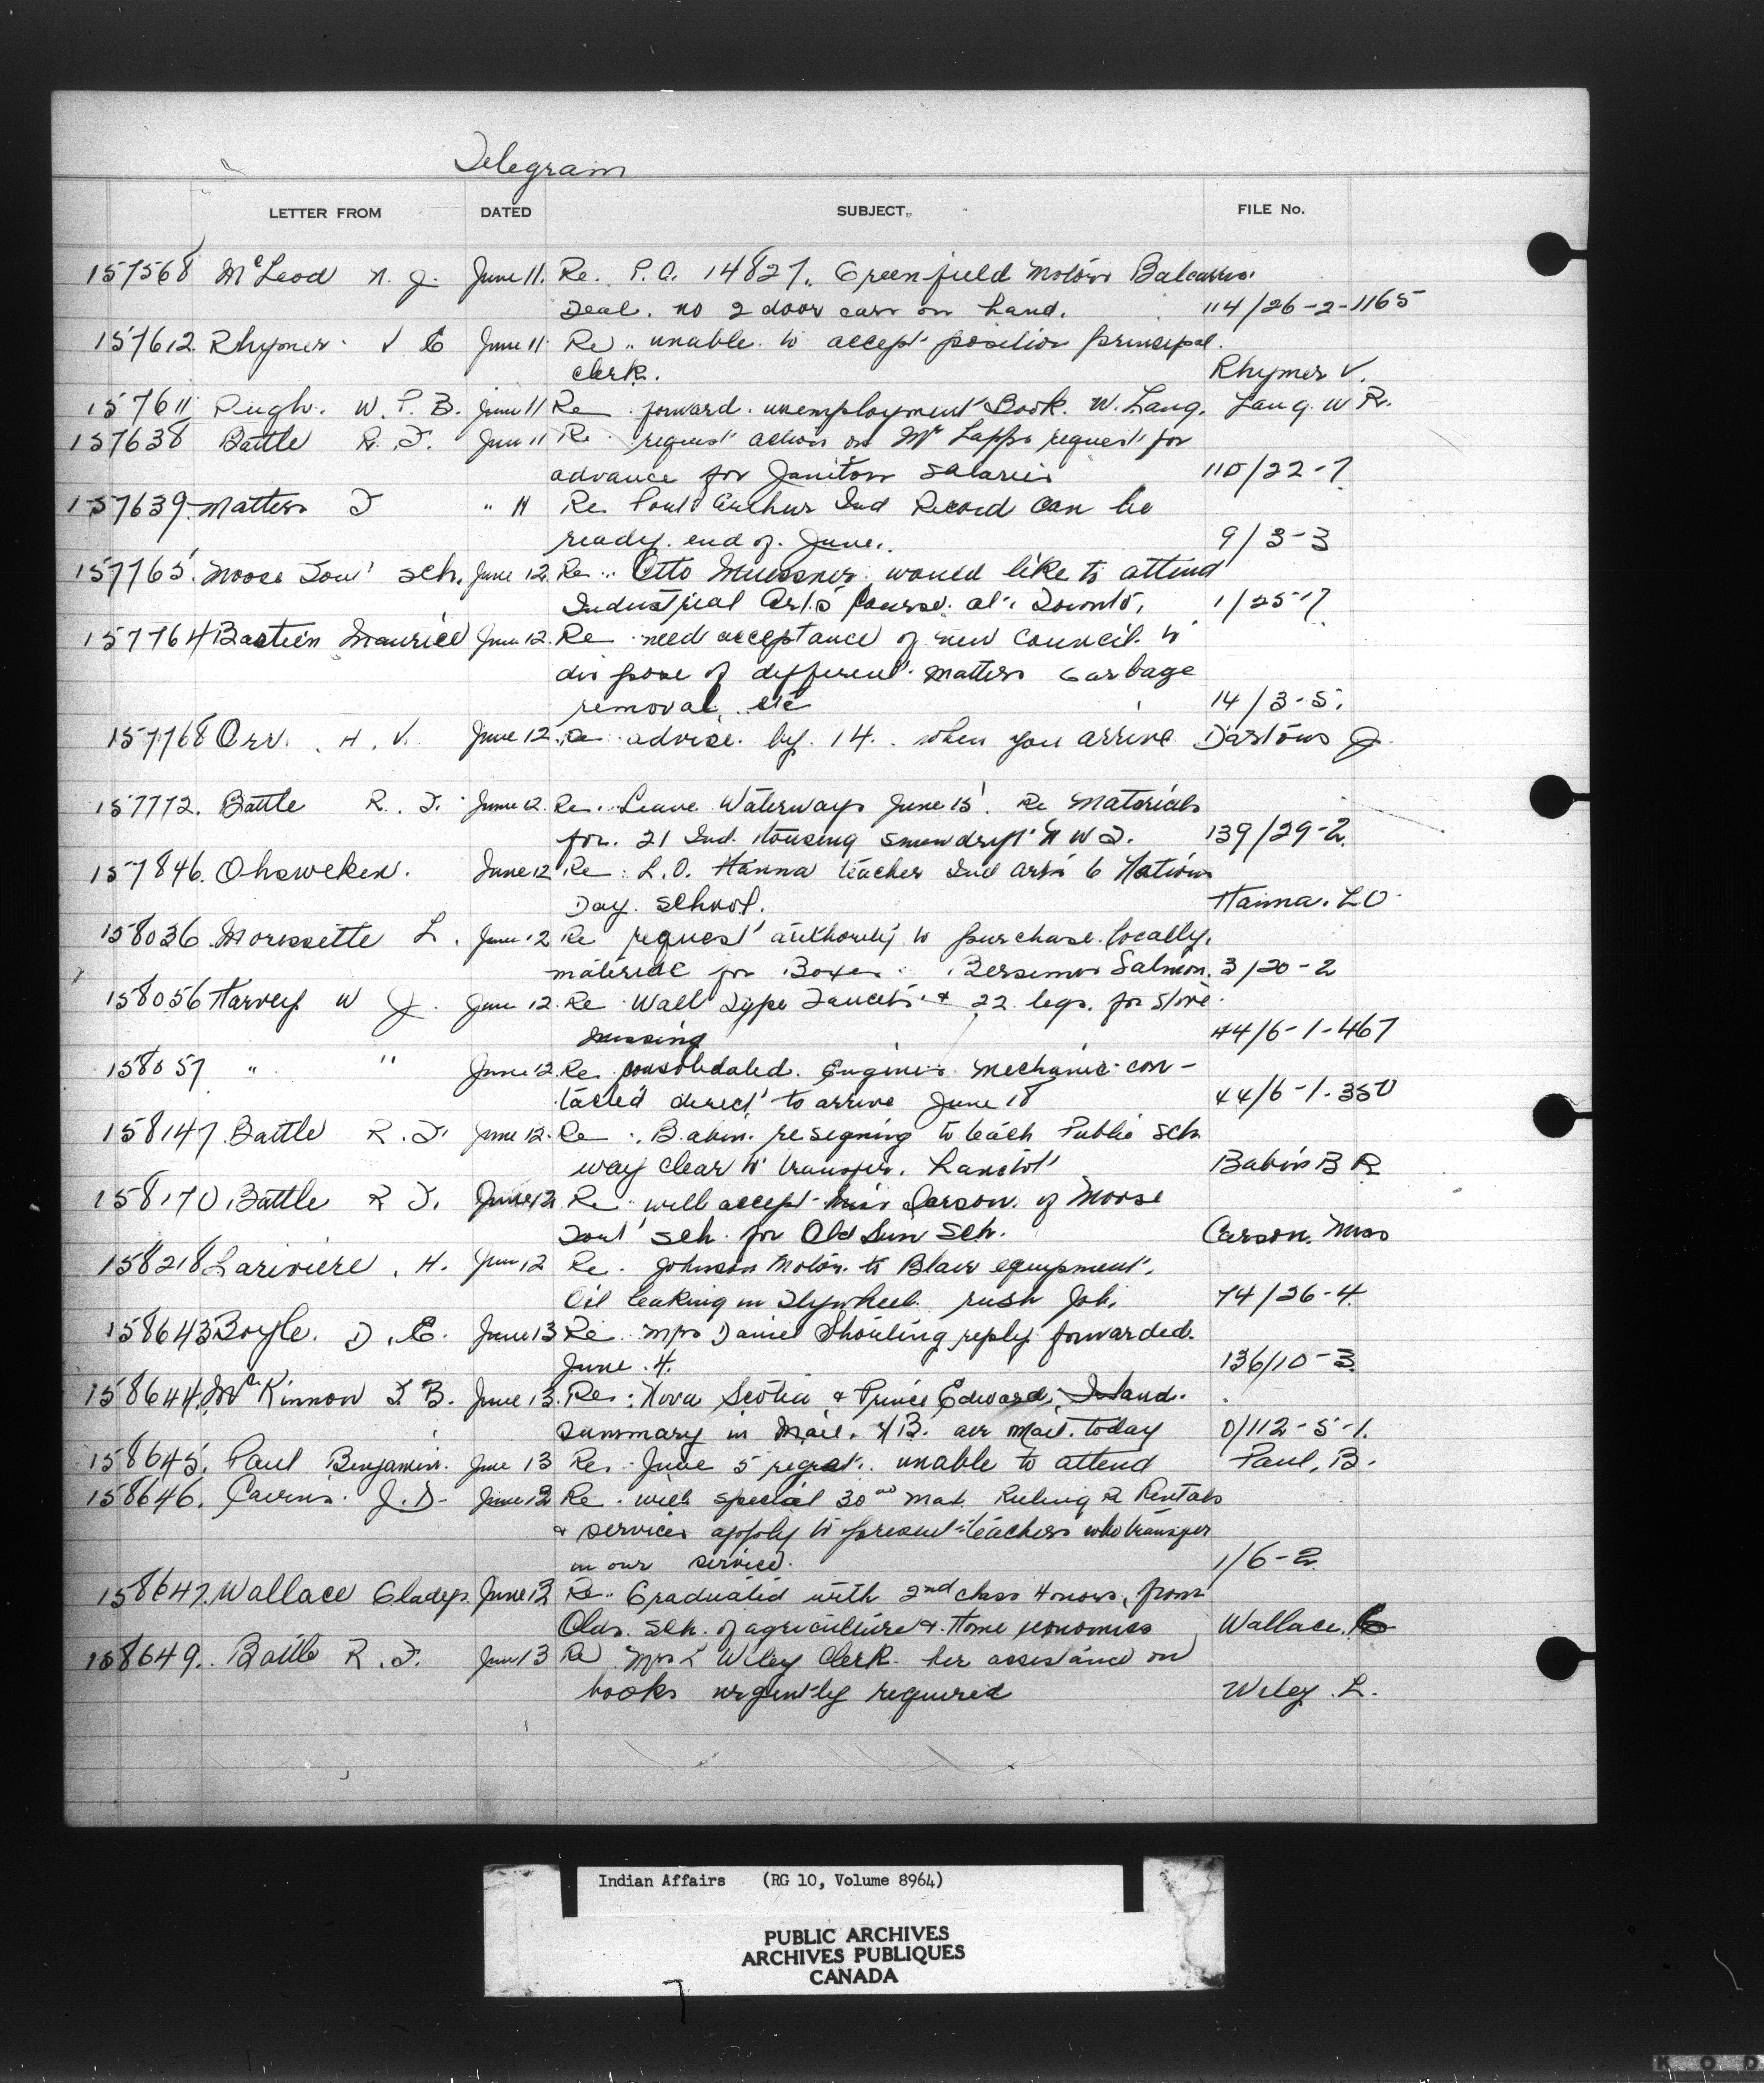 Telegram
LETTER FROM DATED SUBJECT FILE No.
157568 McLeod N. J. June 11. Re. P.O. 14827. Greenfield Motors Balcarres.
Deal. no 2 door cars on hand. 114/26-2-1165
157612 Rhymer V C June 11 Re unable to accept position principal
clerk. Rhymer V.
157611 Pugh. W. P. B. June 11 Re forward unemployment Book. W. Lang. Lang. W R.
157638 Battle R. F. June 11 Re request action on Mr Lapps request for
advance for Janitors Salaries 110/22-7
157639 Matters T " 11 Re Port Arthur Ind Record can be
ready end of June. 9/3-3
157765 Moose Fort Sch. June 12 Re Otto would like to attend
Industrial Arts Course at Toronto. 1/25-7
157764 Bastien Maurice June 12. Re need acceptance of new council to
dispose of different matters Garbage
removal, etc 14/3-5.
157768 Orr. H. V. June 12 Re advise by 14. when you arrive J.
157772. Battle R. F. June 12 Re. Leave Waterways June 15. Re Materials
for 21 Ind. Housing Snowdrift N W T. 139/29-2.
157846. Ohsweken. June 12 Re L. O. Hanna teacher Ind Arts 6 Nations
Day School. Hanna. L O.
158036 Morissette L. June 12 Re request authority to purchase locally.
material for Boxes Bersimis Salmon. 3/20-2
158056 Harvey W J. June 12. Re Wall Type Faucets & 22 legs. for stove
missing 44/6-1-467
158057 " " June 12. Re consolidated Engines mechanic con-
tacted direct to arrive June 18 44/6-1-350
158147. Battle R. F. June 12. Re Babin. resigning to teach Public Sch
way clear to transfer. Lanctot Babin B R
158170. Battle R F. June 12 Re will accept Miss Carson. of Moose
Fort Sch. for Old Sun Sch. Carson. Miss
158218 Lariviere. H. June 12 Re. Johnson Motor to Blair equipment.
Oil leaking in Flywheel rush Job. 74/26-4.
158643 Boyle. D. E. June 13 Re Mrs Daniel Shouting reply forwarded.
June 4. 136/10-3.
158644. McKinnon F B. June 13. Re: Nova Scotia & Prince Edward Island.
Summary in Mail. N.B. air mail today 0/112-5-1.
158645. Paul Benjamin. June 13 Re June 5 regret. unable to attend Paul, B.
158646. Cairns. J. D. June 13 Re. will special 30 Ruling R Rentals
& services apply to present teachers who transfer
in our service. 1/6-2.
158647. Wallace Gladys June 13 Re Graduated with 2nd class Honors, from
Olds. Sch. of agriculture & Home economics Wallace. G
158649. Battle R. F. June 13 Re Mrs L Wiley Clerk her assistance on
books urgently required Wiley L.
Indian Affairs (RG 10, Volume 8964)
PUBLIC ARCHIVES
ARCHIVES PUBLIQUES
CANADA
K O D